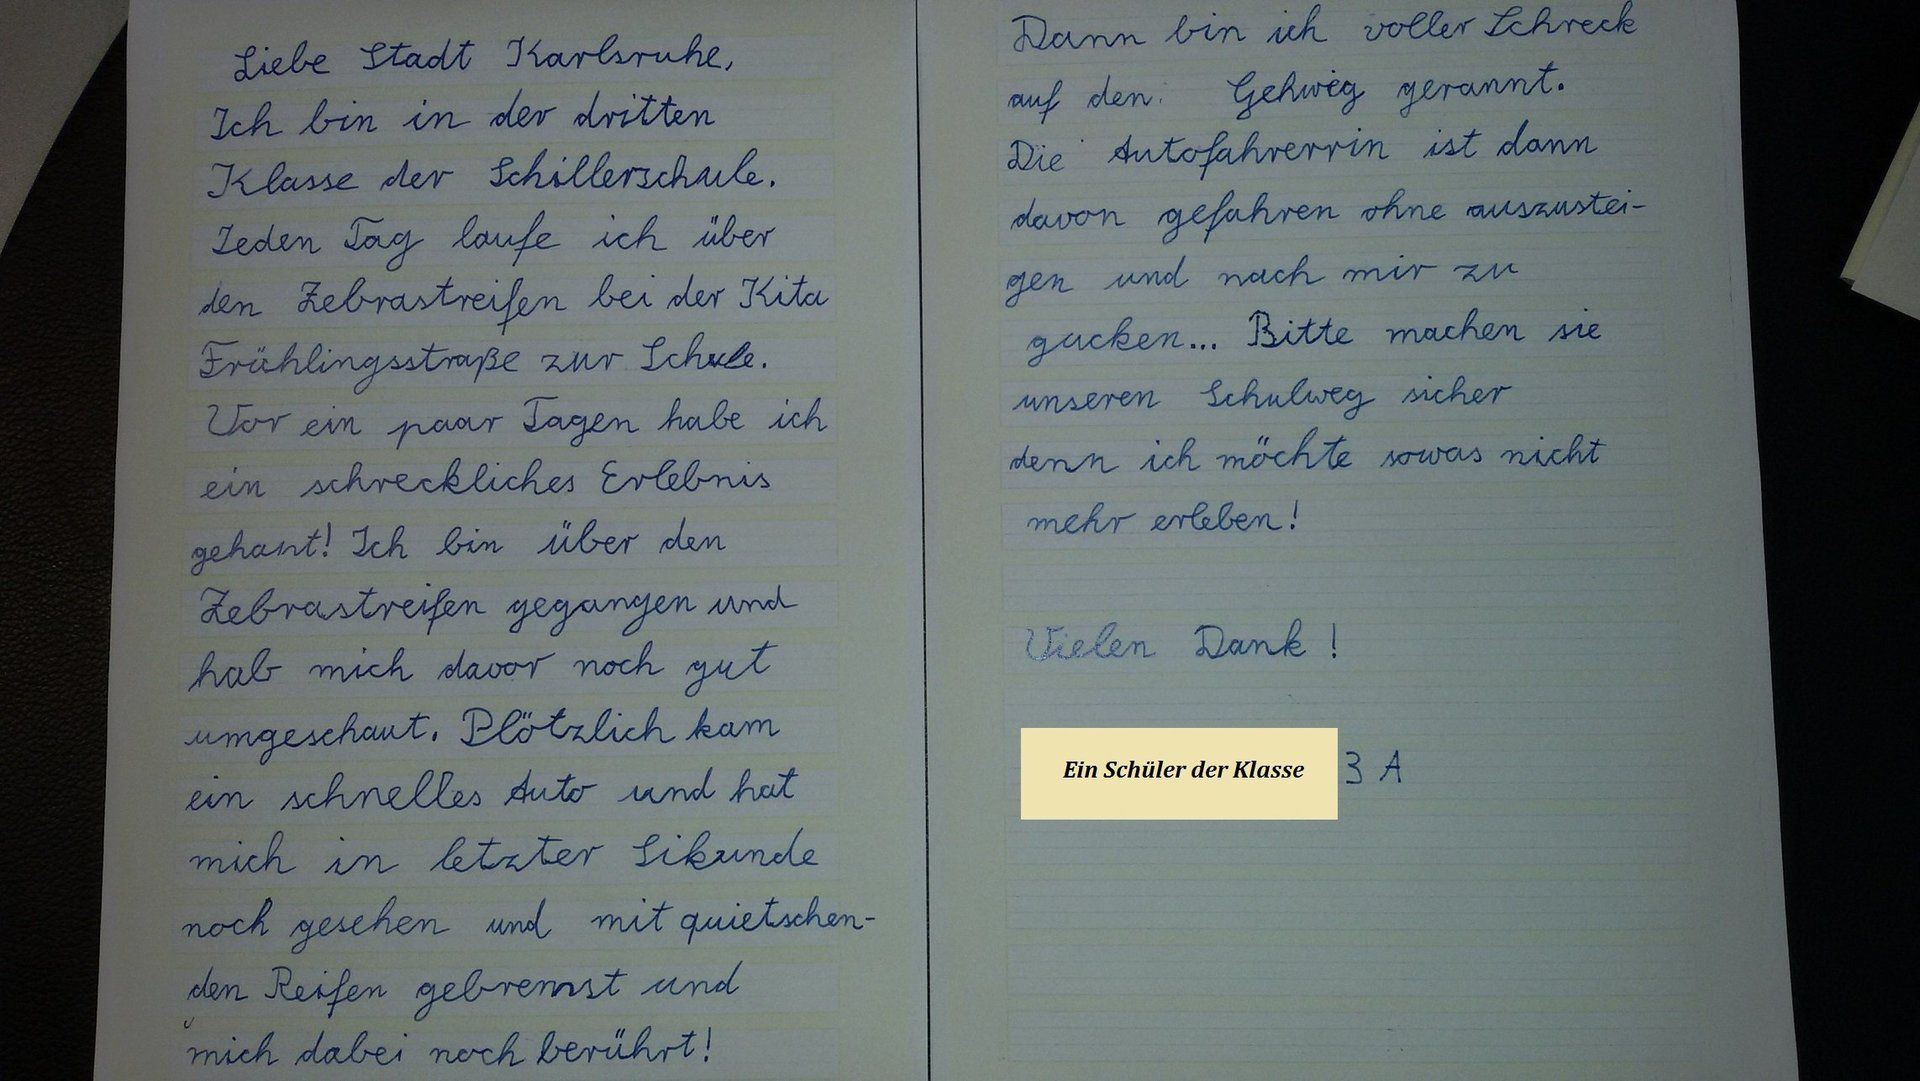 Liebe Stadt Karlsruhe,
Ich bin in der dritten
Klasse der Schillerschule.
Jeden Tag laufe ich über
den Zebrastreifen bei der Kita
Frühlingsstraße zur Schule.
Vor ein paar Tagen habe ich
ein schreckliches Erlebnis
gehant! Ich bin über den
Zebrastreifen gegangen und
hab mich davor noch gut
umgeschaut. Plötzlich kam
ein schnelles Auto und hat
mich in letzter Sikunde
noch gesehen und mit quietschen-
den Reifen gebremst und
mich dabei noch berührt!
Dann bin ich voller Schreck
auf den Gehweg gerannt.
Die Autofahrerrin ist dann
davon gefahren ohne auszustei-
gen und nach mir zu
gucken... Bitte machen sie
unseren Schulweg sicher
denn ich möchte sowas nicht
mehr erleben!
Vielen Dank!
Ein Schüler der Klasse 3 A